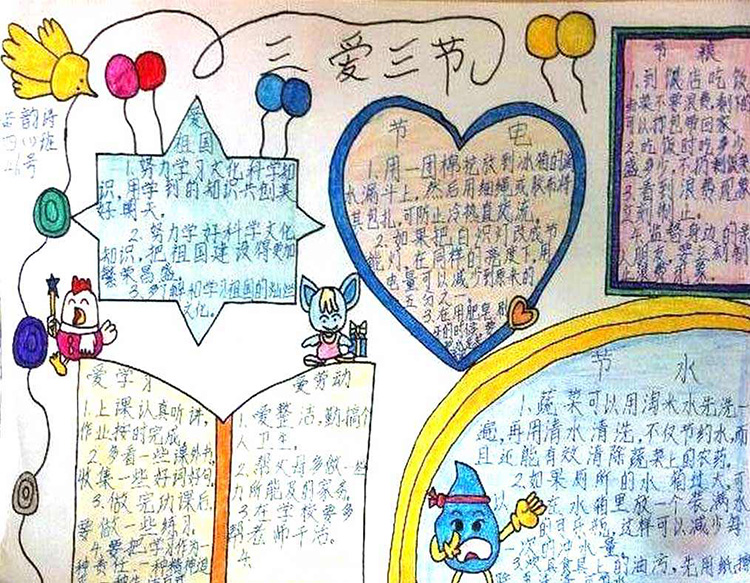 三爱三节
韵诗
四(1)班
46号
爱
祖国
1.努力学习文化科学知
识,用学到的知识共创美
好明天。
2.努力学好科学文化
知识,把祖国建设得更加
繁荣昌盛。
3.多了解和学习祖国的灿烂
文化。
节 电
1.用一团棉花放到冰箱的漏
水漏斗上,然后用细绳或胶布将
其包扎,可防止冷热直交流。
2.如果把白炽灯改成节
能灯,在同样的亮度下,用
电量可以减少到原来的
五分之一。
3.在用肥皂
的时候,要
节 粮
1.到饭店吃饭
点菜不要浪费,剩
可以打包带回家。
2.吃饭时吃多少
盛多少,不扔剩饭
3.看到浪费现象
立刻制止。
4.监督身边的亲
人朋友,
爱学习
1.上课认真听讲,
作业按时完成。
2.多看一些课外书
收集一些好词好句
3.做完功课后
要做一些练习。
4.要把学习作为一
种责任,一种精神追
爱劳动
1.爱整洁,勤搞个
人卫生。
2.帮父母多做一些
力所能及的家务。
3.在学校要多
帮老师干活。
4.
节 水
1.蔬菜可以用淘米水先洗一
遍,再用清水清洗,不仅节约水,而
且还能有效清除蔬菜上的农药。
2.如果厕所的水箱过大,可
以在水箱里放一个装满水
的可乐瓶,这样可以减少每
一次的冲水量。
3.洗具上的油污,先用纸擦